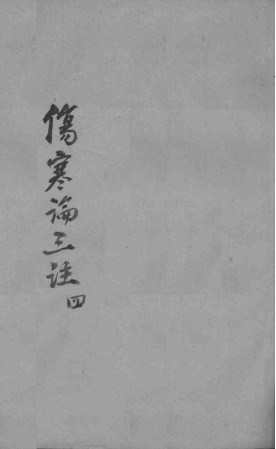 傷寒論三註 四